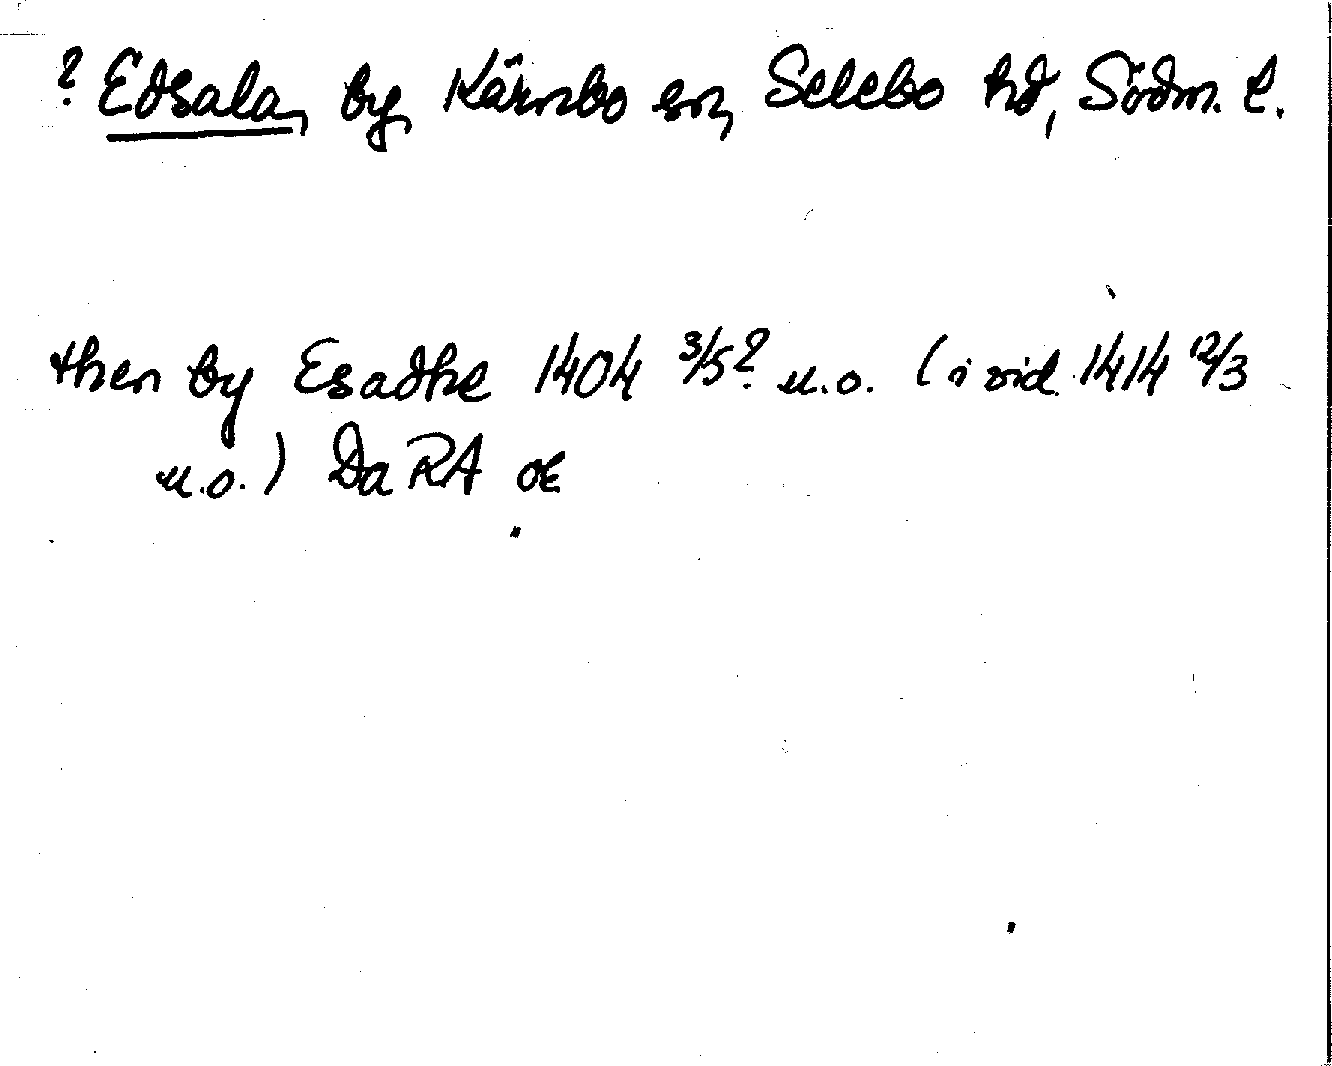 ? Edsala, by, Kärnbo sn, Selebo hd, Södm. l.
then by Esadhe 1404 3/5? u.o. (i vid. 1414 12/3
u.o.) Da RA or.